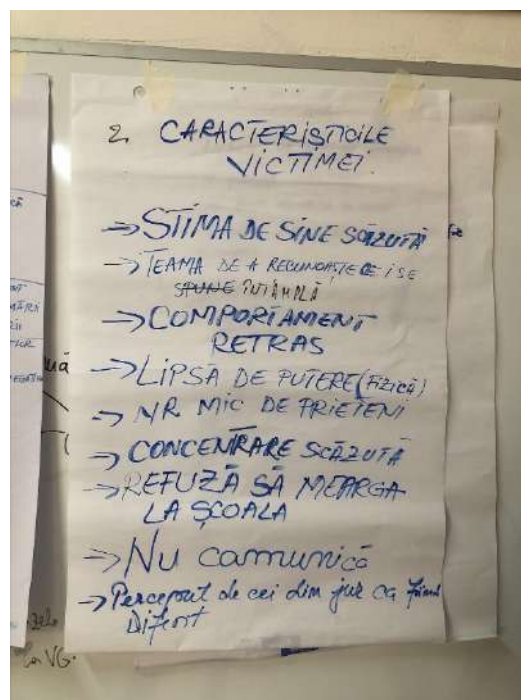 2. CARACTERISTICILE
VICTIMEI.
→ STIMA DE SINE SCĂZUTĂ
→ TEAMA DE A RECUNOAȘTE CE I SE
SPUNE ÎNTÂMPLĂ
→ COMPORTAMENT
RETRAS
→ LIPSA DE PUTERE (FIZICĂ)
→ NR MIC DE PRIETENI
→ CONCENTRARE SCĂZUTĂ
→ REFUZĂ SĂ MEARGA
LA ȘCOALA
→ Nu comunică
→ Perceput de cei din jur ca fiind
Diferit